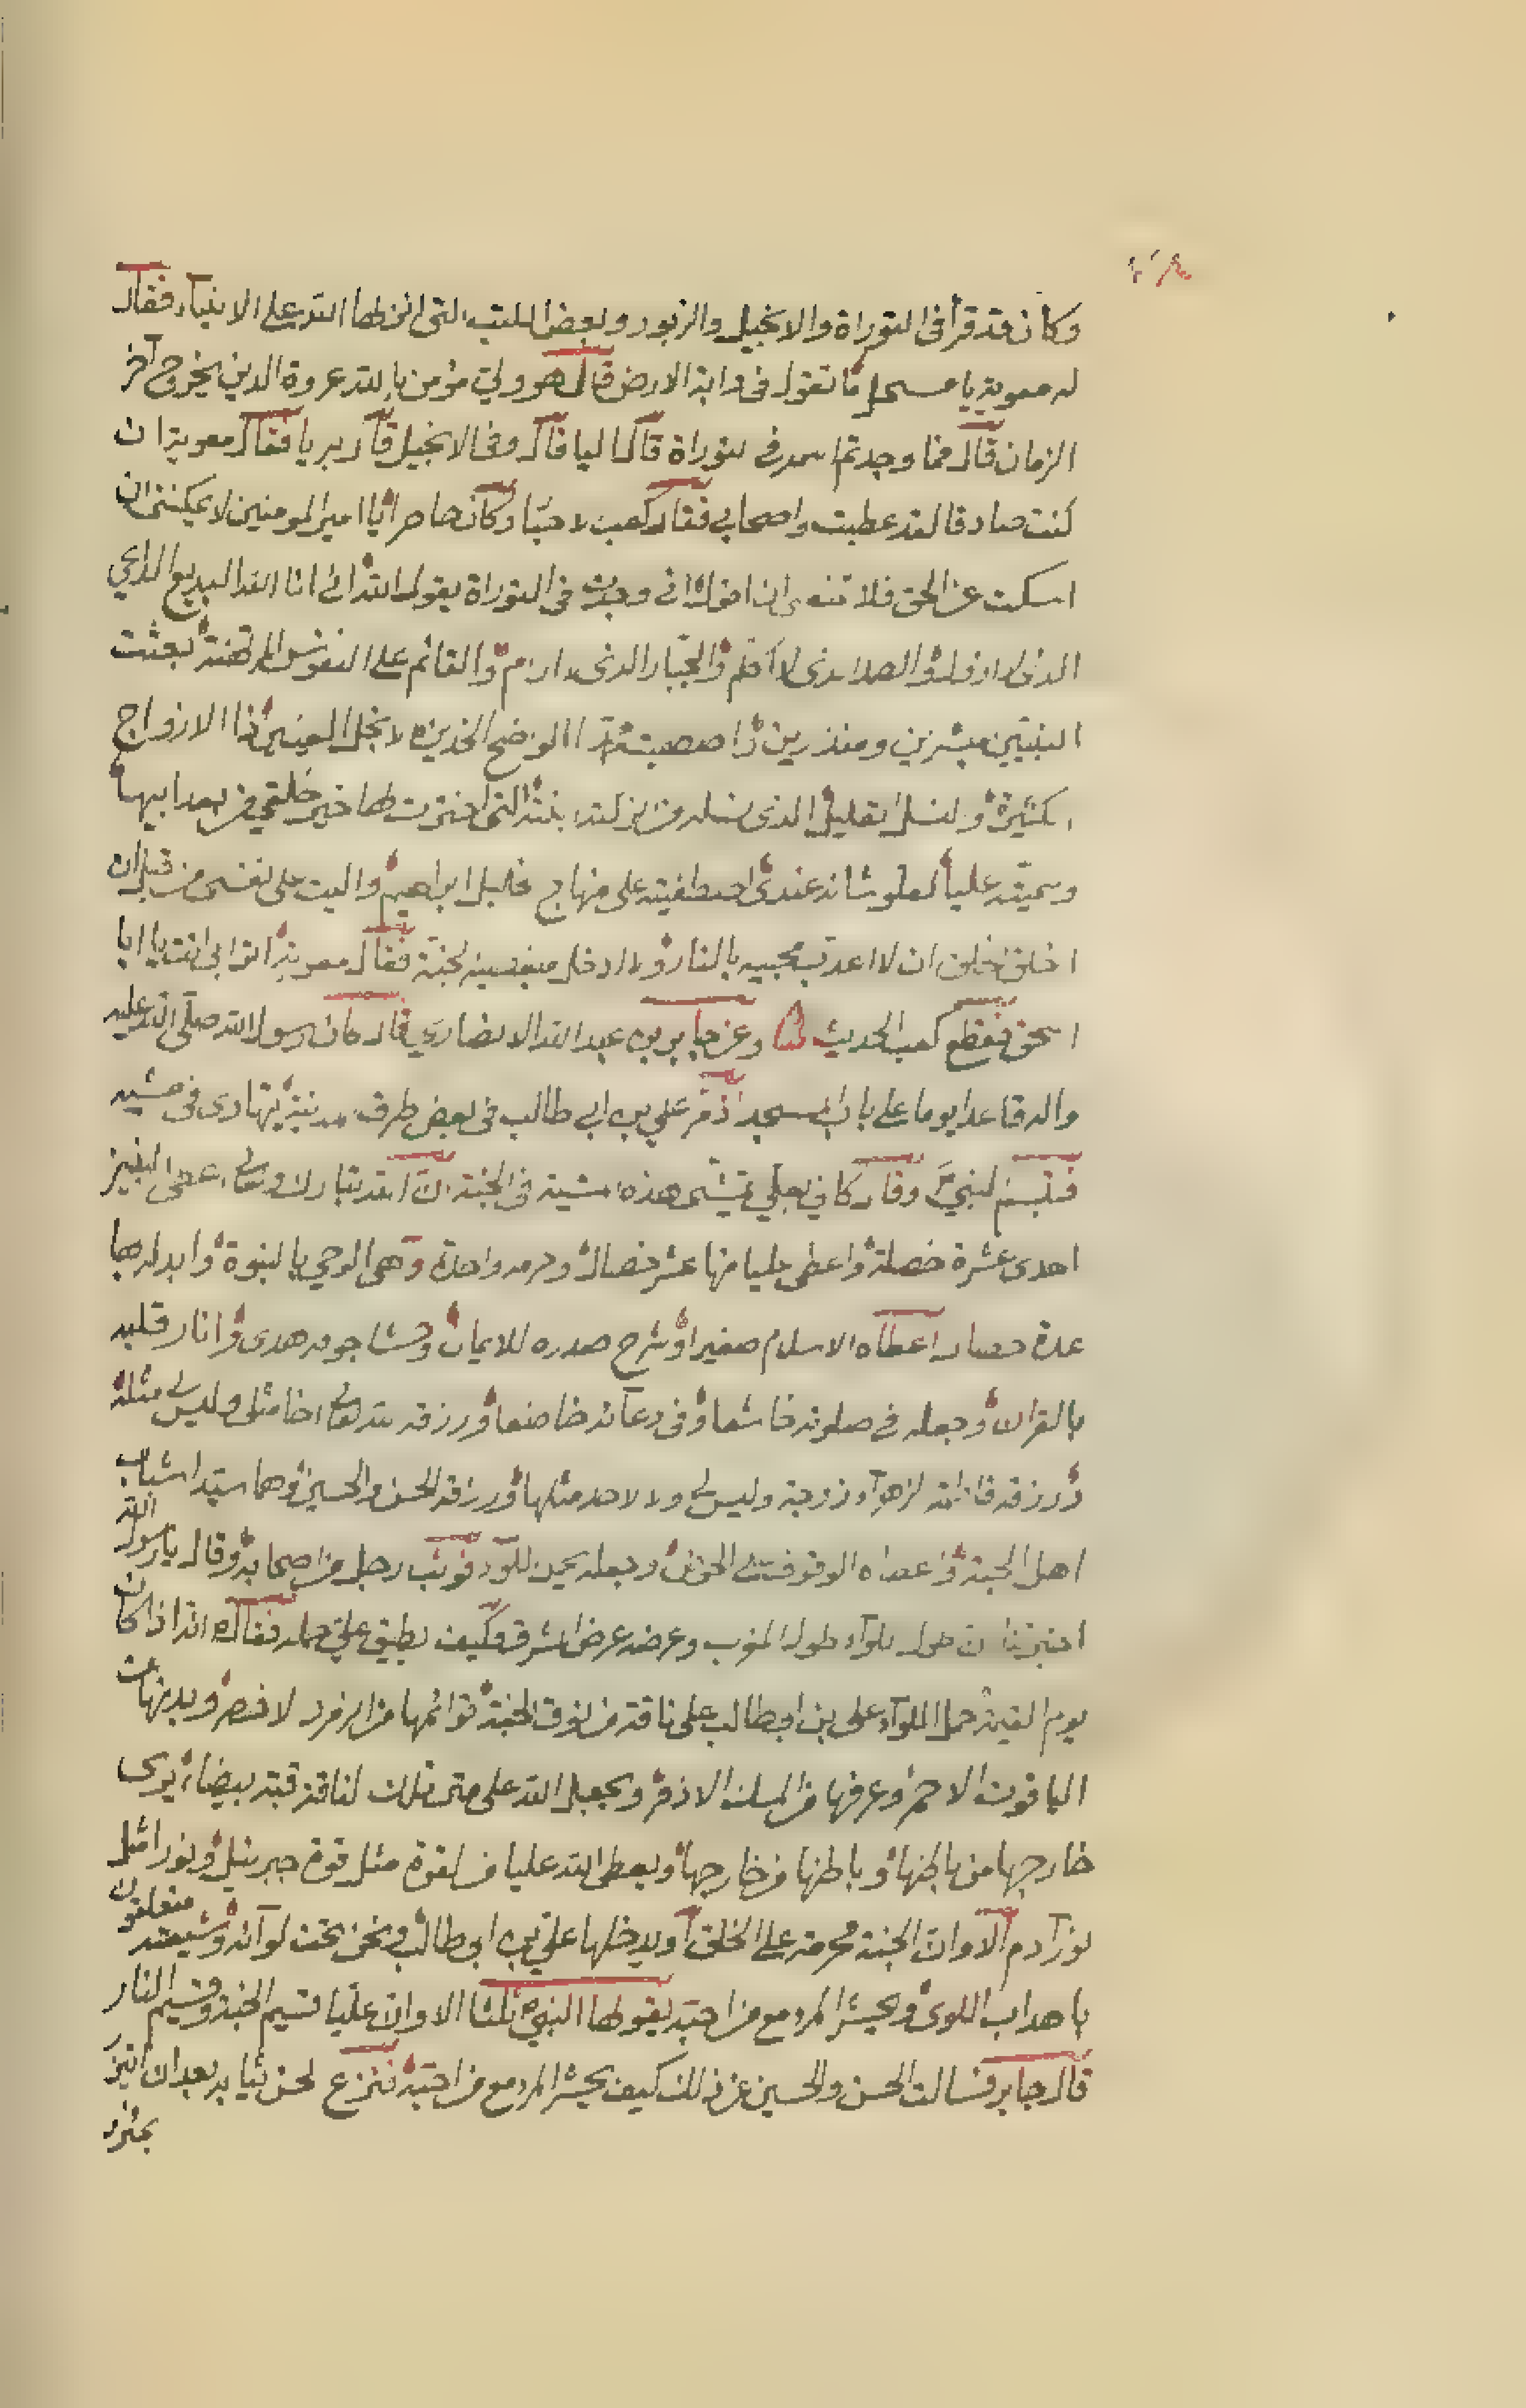 وكان قد قرأ فى التوراة والانجيل والزبور وبعض الكتب التى انزلها الله على الانبيآء فقال
له معوية يا ما تقول فى دابة الارض قال هو ولي مؤمن بالله عروة الدين يخروج آخر
الزمان قال فما وجدتم اسمه فى التوراة قال اليا قال وفى الانجيل قال بريا فقال معوية ان
كنت صادقا لقد عطبت واصحابي فقال كعب الاحبار وكان حاضرا يا امير المومنين لا يمكننى ان
اسكت عن الحق فلا ان اقول انى وجدت فى التوراة يقول الله انى انا الله البديع الداعي
الذى لا ازول والصمد الذى لا والجبار الذى لا ارام والقائم على النفوس المرتهنة بعثت
النبيين مبشرين ومنذرين الانجل العينين ذا الازواج
الكثيرة والنسل القليل الذى نسله من ابنته التى اخترت لها خير خلقي من بعد ابيها
وسميته عليا لعلو شانه عندى اصطفيته على منهاج خليل ابراهيم واليت على نفسى من قبل ان
اخلق الخلق ان لا اعذب محبيه بالنار ولا ادخل مبغضيه الجنة فقال معوية انت يا ابا
اسحق فقطع كعب الحديث وعن جابر بن عبد الله الانصاري قال كان رسول الله صلى الله عليه
واله قاعدا يوما على باب المسجد اذ مر علي بن ابي طالب فى بعض طرف المدينة يتهادى فى مشيه
فتبسم النبي وقال كاني بعلي يمشى هذه المشية فى الجنة ان الله تبارك وتعالى اعطى النبيين
احدى عشرة خصلة واعطى عليا منها عشر خصال وحرمه واحدة وهى الوحي بالنبوة وابدله بها
عدة خصال اعطاه الاسلام صغيرا وشرح صدره للايمان وحشا جوفه هدى وانار قلبه
بالقران وجعله فى صلوته خاشعا وفى دعآئه خاضعا ورزقه الله تعالى اخا مثلى وليس لى مثله
ورزقه فاطمة الزهرآء زوجة وليس لى ولا لاحد مثلها ورزقه الحسن والحسين وهما سيدا شباب
اهل الجنة واعطاه الوقوف على الحوض وجعله يحمل اللوآء فوثب رجل من اصحابه وقال يا رسول الله
اخبرتنا ان طول اللوآء طول المغرب وعرضه عرض المشرق فكيف يطيق علي حمله فقال انه اذا كان
يوم القيمة حمل اللوآء على بن ابى طالب على ناقة من نوق الجنة قوائمها من الزمرد الاخضر
الياقوت الاحمر وعرفها من المسك الاذفر ويجعل الله على متن تلك الناقة قبة بيضاء يرى
خارجها من باطنها وباطنها من خارجها ويعطى الله عليا من القوة مثل قوة جبرئيل ونورا مثل
نور آدم الا وان الجنة محرمة على الخلق او يدخلها علي بن ابى طالب ونحن تحت لوآئه وشيعته متعلقون
باهداب اللوى ويحشر المرء مع من احبه يقولها النبي ثلثا الا وان عليا قسيم الجنة وقسيم النار
قال جابر فسالت الحسن والحسين عن ذلك كيف يحشر المرء مع من احبه فنزع الحسن ثيابه بعد ان اتزر
بمئزر